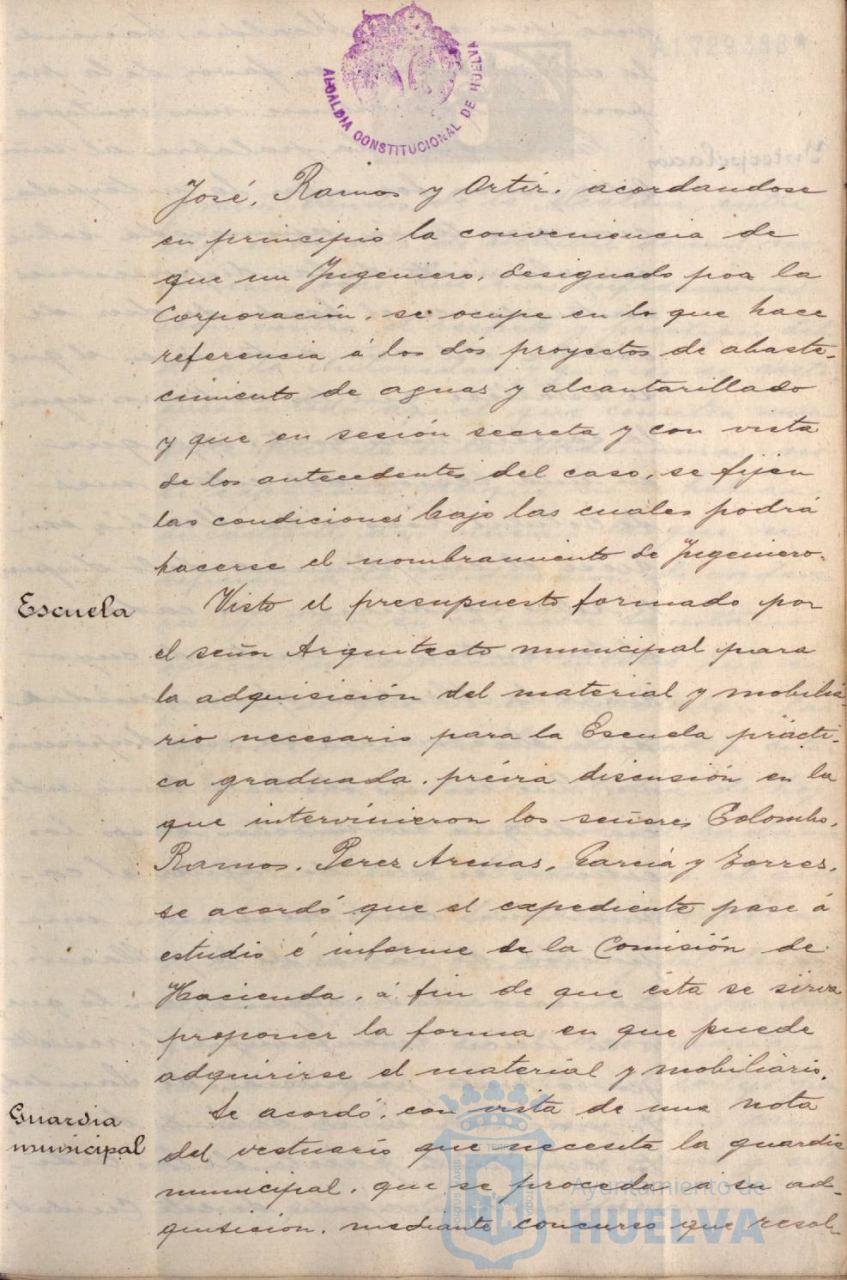 ALCALDIA CONSTITUCIONAL DE HUELVA
José, Ramos y Ortiz, acordándose
en principio la conveniencia de
que un Ingeniero, designado por la
Corporación, se ocupe en lo que hace
referencia á los dós proyectos de abaste-
cimiento de aguas y alcantarillado
y que en sesión secreta y con vista
de los antecedentes del caso, se fijen
las condiciones bajo las cuales podrá
hacerse el nombramiento de Ingeniero.
Escuela
Visto el presupuesto formado por
el señor Arquitecto municipal para
la adquisición del material y mobilia-
rio necesario para la Escuela prácti-
ca graduada, prévia discusión en la
que intervinieron los señores Colombo,
Ramos, Perez Arenas, García y Torres,
se acordó que el expediente pase á
estudio é informe de la Comisión de
Hacienda, á fin de que ésta se sirva
proponer la forma en que puede
adquirirse el material y mobiliario.
Guardia
municipal
Se acordó, con vista de una nota
del vestuario que necesita la guardia
municipal, que se proceda a su ad-
quisicion, mediante concurso que resol-
Ayuntamiento de
HUELVA